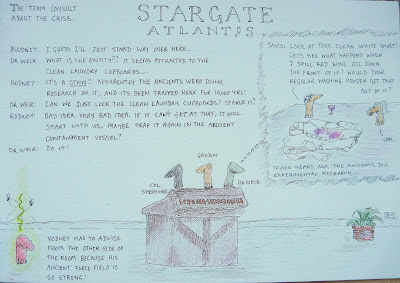 THE TEAM CONSULT
ABOUT THE CRISIS.
STARGATE
ATLANTIS
RODNEY: I GUESS I'LL JUST STAND WAY OVER HERE.
DR WEIR: WHAT IS THE ENTITY?? IT SEEMS ATTRACTED TO THE
CLEAN LAUNDRY CUPBOARDS...
RODNEY: IT'S A STAIN!! APPARENTLY THE ANCIENTS WERE DOING
RESEARCH ON IT, AND IT'S BEEN TRAPPED HERE FOR 10,000 YRS!
DR WEIR: CAN WE JUST LOCK THE CLEAN LAUNDRY CUPBOARDS? STARVE IT?
RODNEY: BAD IDEA. VERY BAD IDEA. IF IT CAN'T GET AT THAT, IT WILL
START WITH US. MAYBE TRAP IT AGAIN IN THE ANCIENT
CONTAINMENT VESSEL?
DR WEIR: DO IT!
SHOW: LOOK AT THIS CLEAN WHITE SHIRT!
LETS SEE WHAT HAPPENS WHEN
I SPILL RED WINE ALL DOWN
THE FRONT OF IT! WOULD YOUR
REGULAR WASHING POWDER GET THAT
OUT OF IT?
10,000 YEARS AGO, THE ANCIENTS DID
EXPERIMENTAL RESEARCH...
COL.
SHEPPARD
GRODIN
DR WEIR
RODNEY HAS TO ADVISE
FROM THE OTHER SIDE OF
THE ROOM BECAUSE HIS
ANCIENT FORCE FIELD IS
SO STRONG!